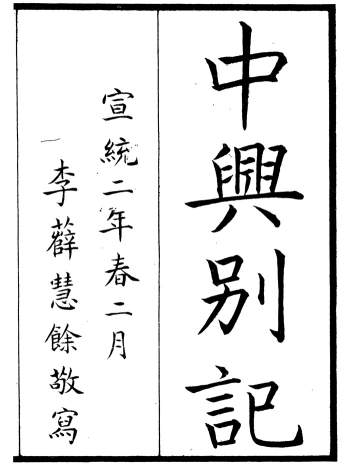 中興别記
宣統二年春二月
李薛慧餘敬寫